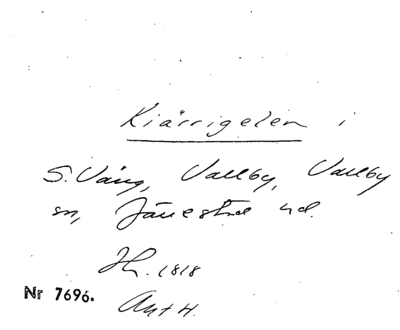 Kiärrigelen i
S. Vång, Vallby, Vallby
sn, Järrestad hd.
Jh. 1818
Nr 7696.
Ant H.